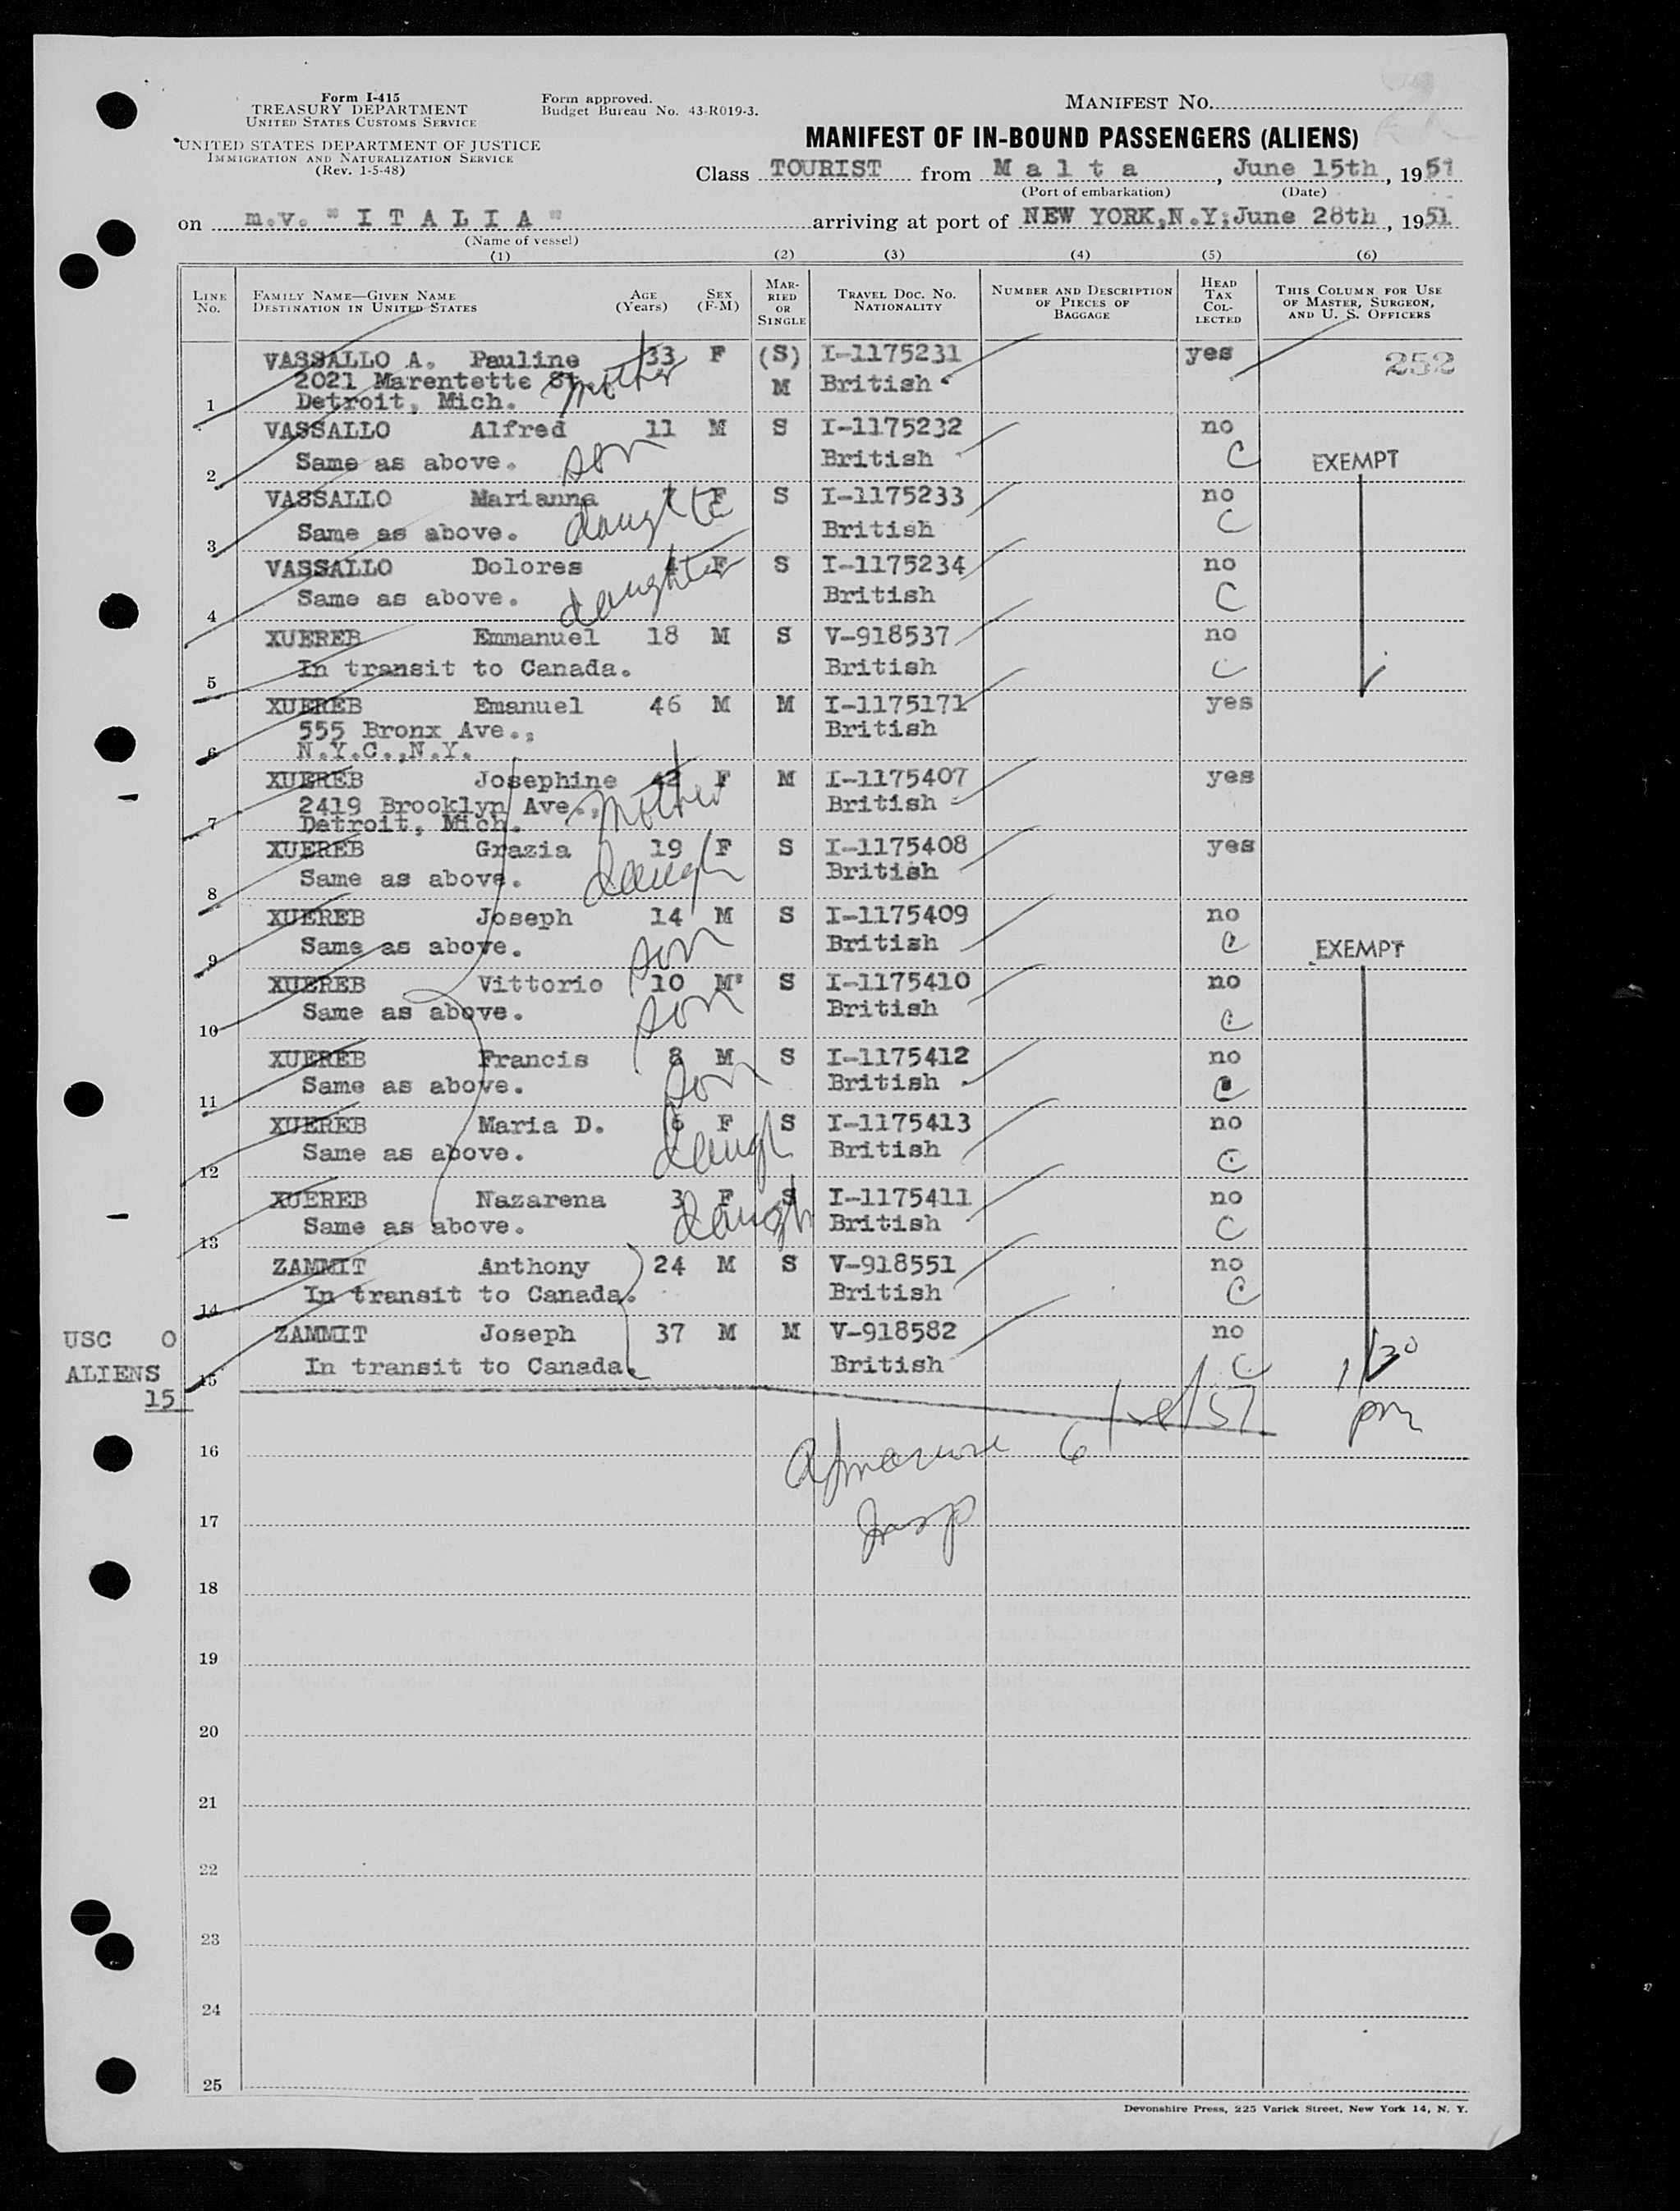 Form I-415
TREASURY DEPARTMENT
UNITED STATES CUSTOMS SERVICE
UNITED STATES DEPARTMENT OF JUSTICE
IMMIGRATION AND NATURALIZATION SERVICE
(Rev. 1-5-48)
Form approved.
Budget Bureau No. 43-R019-3.
MANIFEST NO.
MANIFEST OF IN-BOUND PASSENGERS (ALIENS)
Class TOURIST from Malta, June 15th, 1951
(Port of embarkation) (Date)
on m.v. "ITALIA" arriving at port of NEW YORK,N.Y; June 28th, 1951
(Name of vessel)
(1) (2) (3) (4) (5) (6)
LINE NO.
FAMILY NAME—GIVEN NAME
DESTINATION IN UNITED STATES
AGE (Years)
SEX (F-M)
MARRIED OR SINGLE
TRAVEL DOC. NO. NATIONALITY
NUMBER AND DESCRIPTION OF PIECES OF BAGGAGE
HEAD TAX COLLECTED
THIS COLUMN FOR USE OF MASTER, SURGEON, AND U. S. OFFICERS
VASSALLO A. Pauline 33 F (S) I-1175231 yes 252
2021 Marentette St. mother M British
1 Detroit, Mich.
VASSALLO Alfred 11 M S I-1175232 no
2 Same as above. son British C EXEMPT
VASSALLO Marianna 7 F S I-1175233 no
3 Same as above. daughter British C
VASSALLO Dolores 4 F S I-1175234 no
4 Same as above. daughter British C
XUEREB Emmanuel 18 M S V-918537 no
5 In transit to Canada. British C
XUEREB Emanuel 46 M M I-1175171 yes
555 Bronx Ave., British
6 N.Y.C.,N.Y.
XUEREB Josephine 42 F M I-1175407 yes
2419 Brooklyn Ave., mother British
7 Detroit, Mich.
XUEREB Grazia 19 F S I-1175408 yes
8 Same as above. daugh British
XUEREB Joseph 14 M S I-1175409 no
9 Same as above. son British C EXEMPT
XUEREB Vittorio 10 M S I-1175410 no
10 Same as above. son British C
XUEREB Francis 8 M S I-1175412 no
11 Same as above. son British C
XUEREB Maria D. 6 F S I-1175413 no
12 Same as above. daugh British C
XUEREB Nazarena 3 F S I-1175411 no
13 Same as above. daugh British C
ZAMMIT Anthony 24 M S V-918551 no
14 In transit to Canada. British C
USC 0 ZAMMIT Joseph 37 M M V-918582 no
ALIENS 15 In transit to Canada. British C 1/30
15 pm
16
17 Insp
18
19
20
21
22
23
24
25
Devonshire Press, 225 Varick Street, New York 14, N. Y.